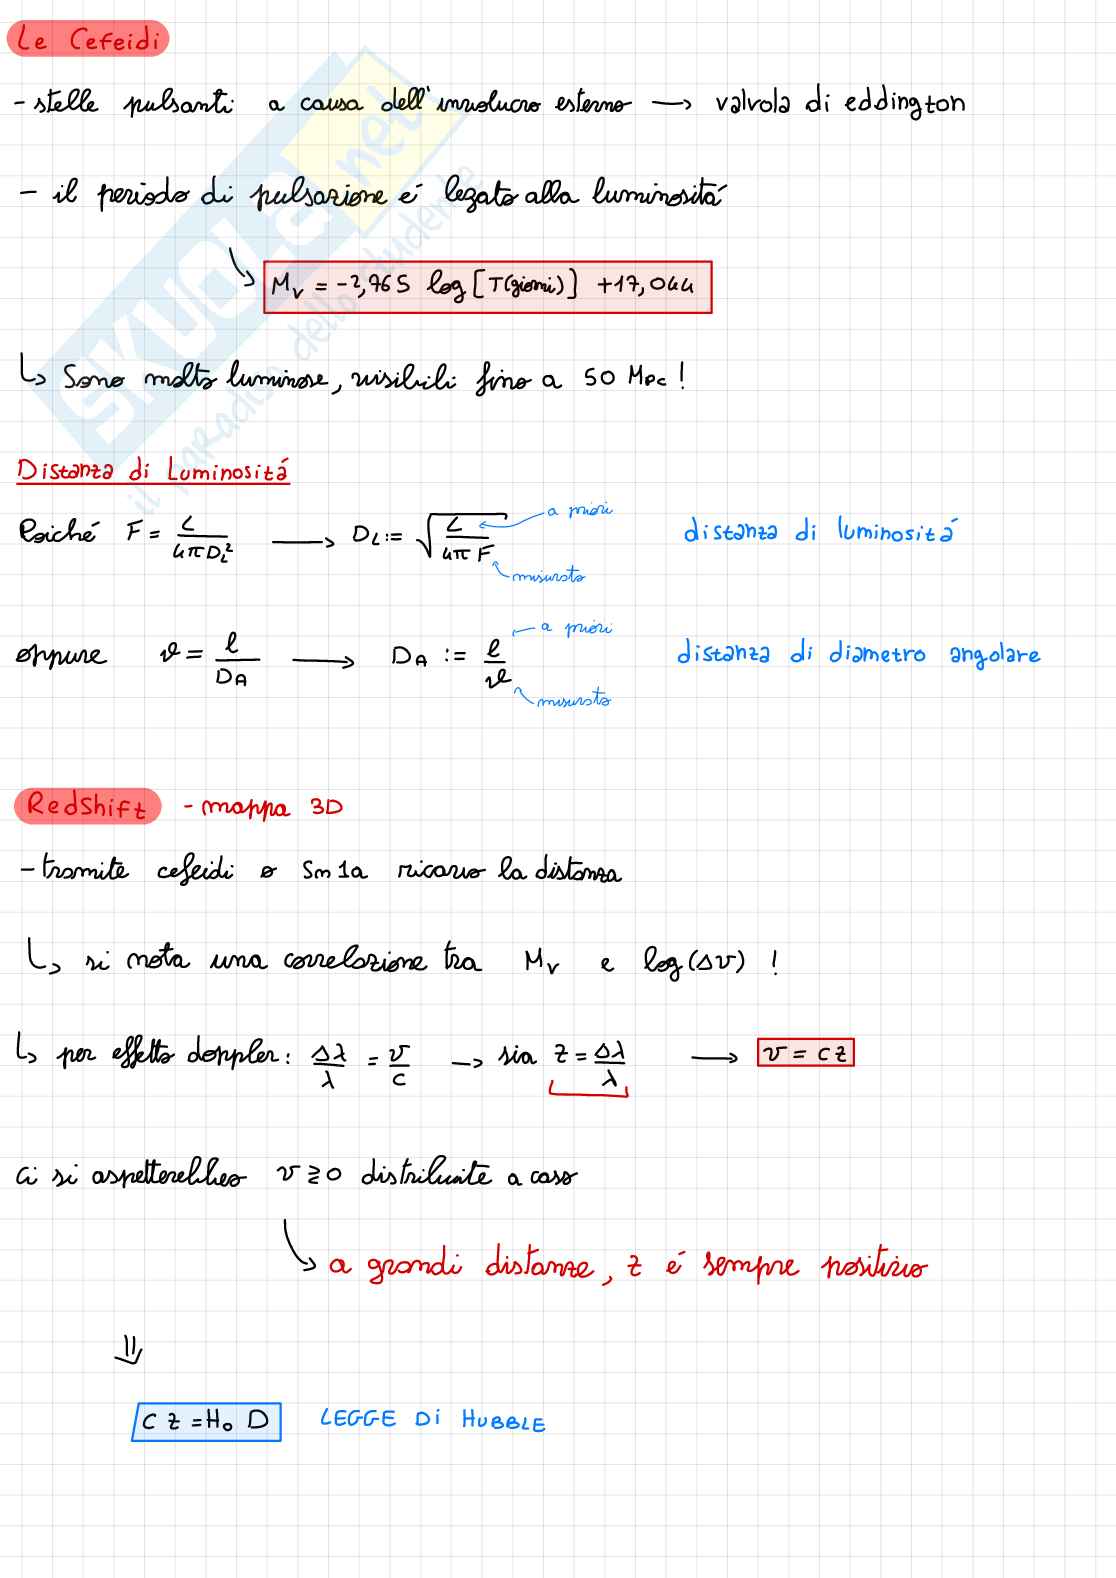 Le Cefeidi
- stelle pulsanti a causa dell'involucro esterno → valvola di eddington
- il periodo di pulsazione é legato alla luminositá
M_v = -2,765 log [T(giorni)] +17,044
↳ Sono molto luminose, visibili fino a 50 Mpc!
Distanza di Luminositá
Poiché F = L / 4πD_L² → D_L := √(L / 4πF) a priori misurato distanza di luminositá
oppure ϑ = l / D_A → D_A := l / ϑ a priori misurato distanza di diametro angolare
Redshift - mappa 3D
- tramite cefeidi o Sn1a ricavo la distanza
↳ si nota una correlazione tra M_v e log(Δv) !
↳ per effetto doppler: Δλ/λ = v/c → sia z = Δλ/λ → v = cz
Ci si aspetterebbero v≷0 distribuite a caso
↳ a grandi distanze, z é sempre positivo
⇓
c z = H₀ D LEGGE DI HUBBLE
SKUOLA.net
il paradiso dello studente